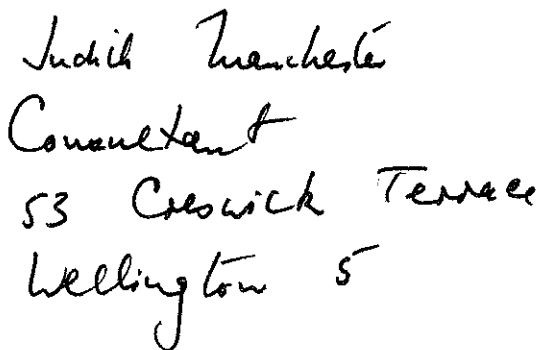 Judith Manchester
Consultant
53 Creswick Terrace
Wellington 5